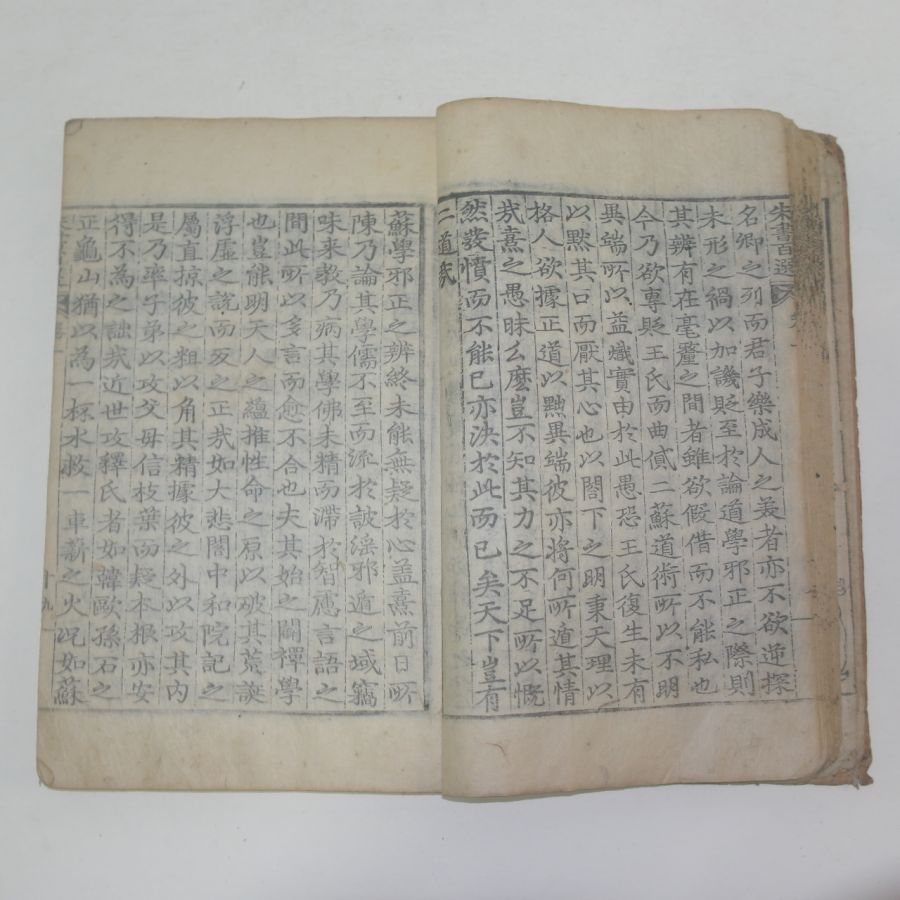 朱書百選
名卿之列而君子樂成人之美者亦不欲逆探
未形之禍以加譏貶至於論道學邪正之際則
其辨有在毫釐之間者雖欲假借而不能私也
今乃欲專貶王氏而曲貸二蘇道術所以不明
異端所以益熾實由於此愚恐王氏復生未有
以默其口而厭其心也以閤下之明秉天理以
格人欲據正道以黜異端彼亦將何所遁其情
哉熹之愚昧么麼豈不知其力之不足所以慨
然發憤而不能已亦決於此而已矣天下豈有
二道哉
蘇學邪正之辨終未能無疑於心蓋熹前日所
陳乃論其學儒不至而流於詖淫邪遁之域竊
味来教乃病其學佛未精而滯於智慮言語之
間此所以多言而愈不合也夫其始之闢禪學
也豈能明天人之蘊推性命之原以破其荒誕
浮虛之說而反之正哉如大悲閤中和院記之
屬直掠彼之粗以角其精據彼之外以攻其內
是乃率子弟以攻父母信枝葉而疑本根亦安
得不為之詘哉近世攻釋氏者如韓歐孫石之
正龜山猶以為一杯水救一車薪之火況如蘇
十九